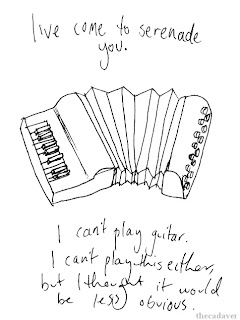 I've come to serenade
you.
I can't play guitar.
I can't play this either,
but I thought it would
be less obvious.
thecadaver